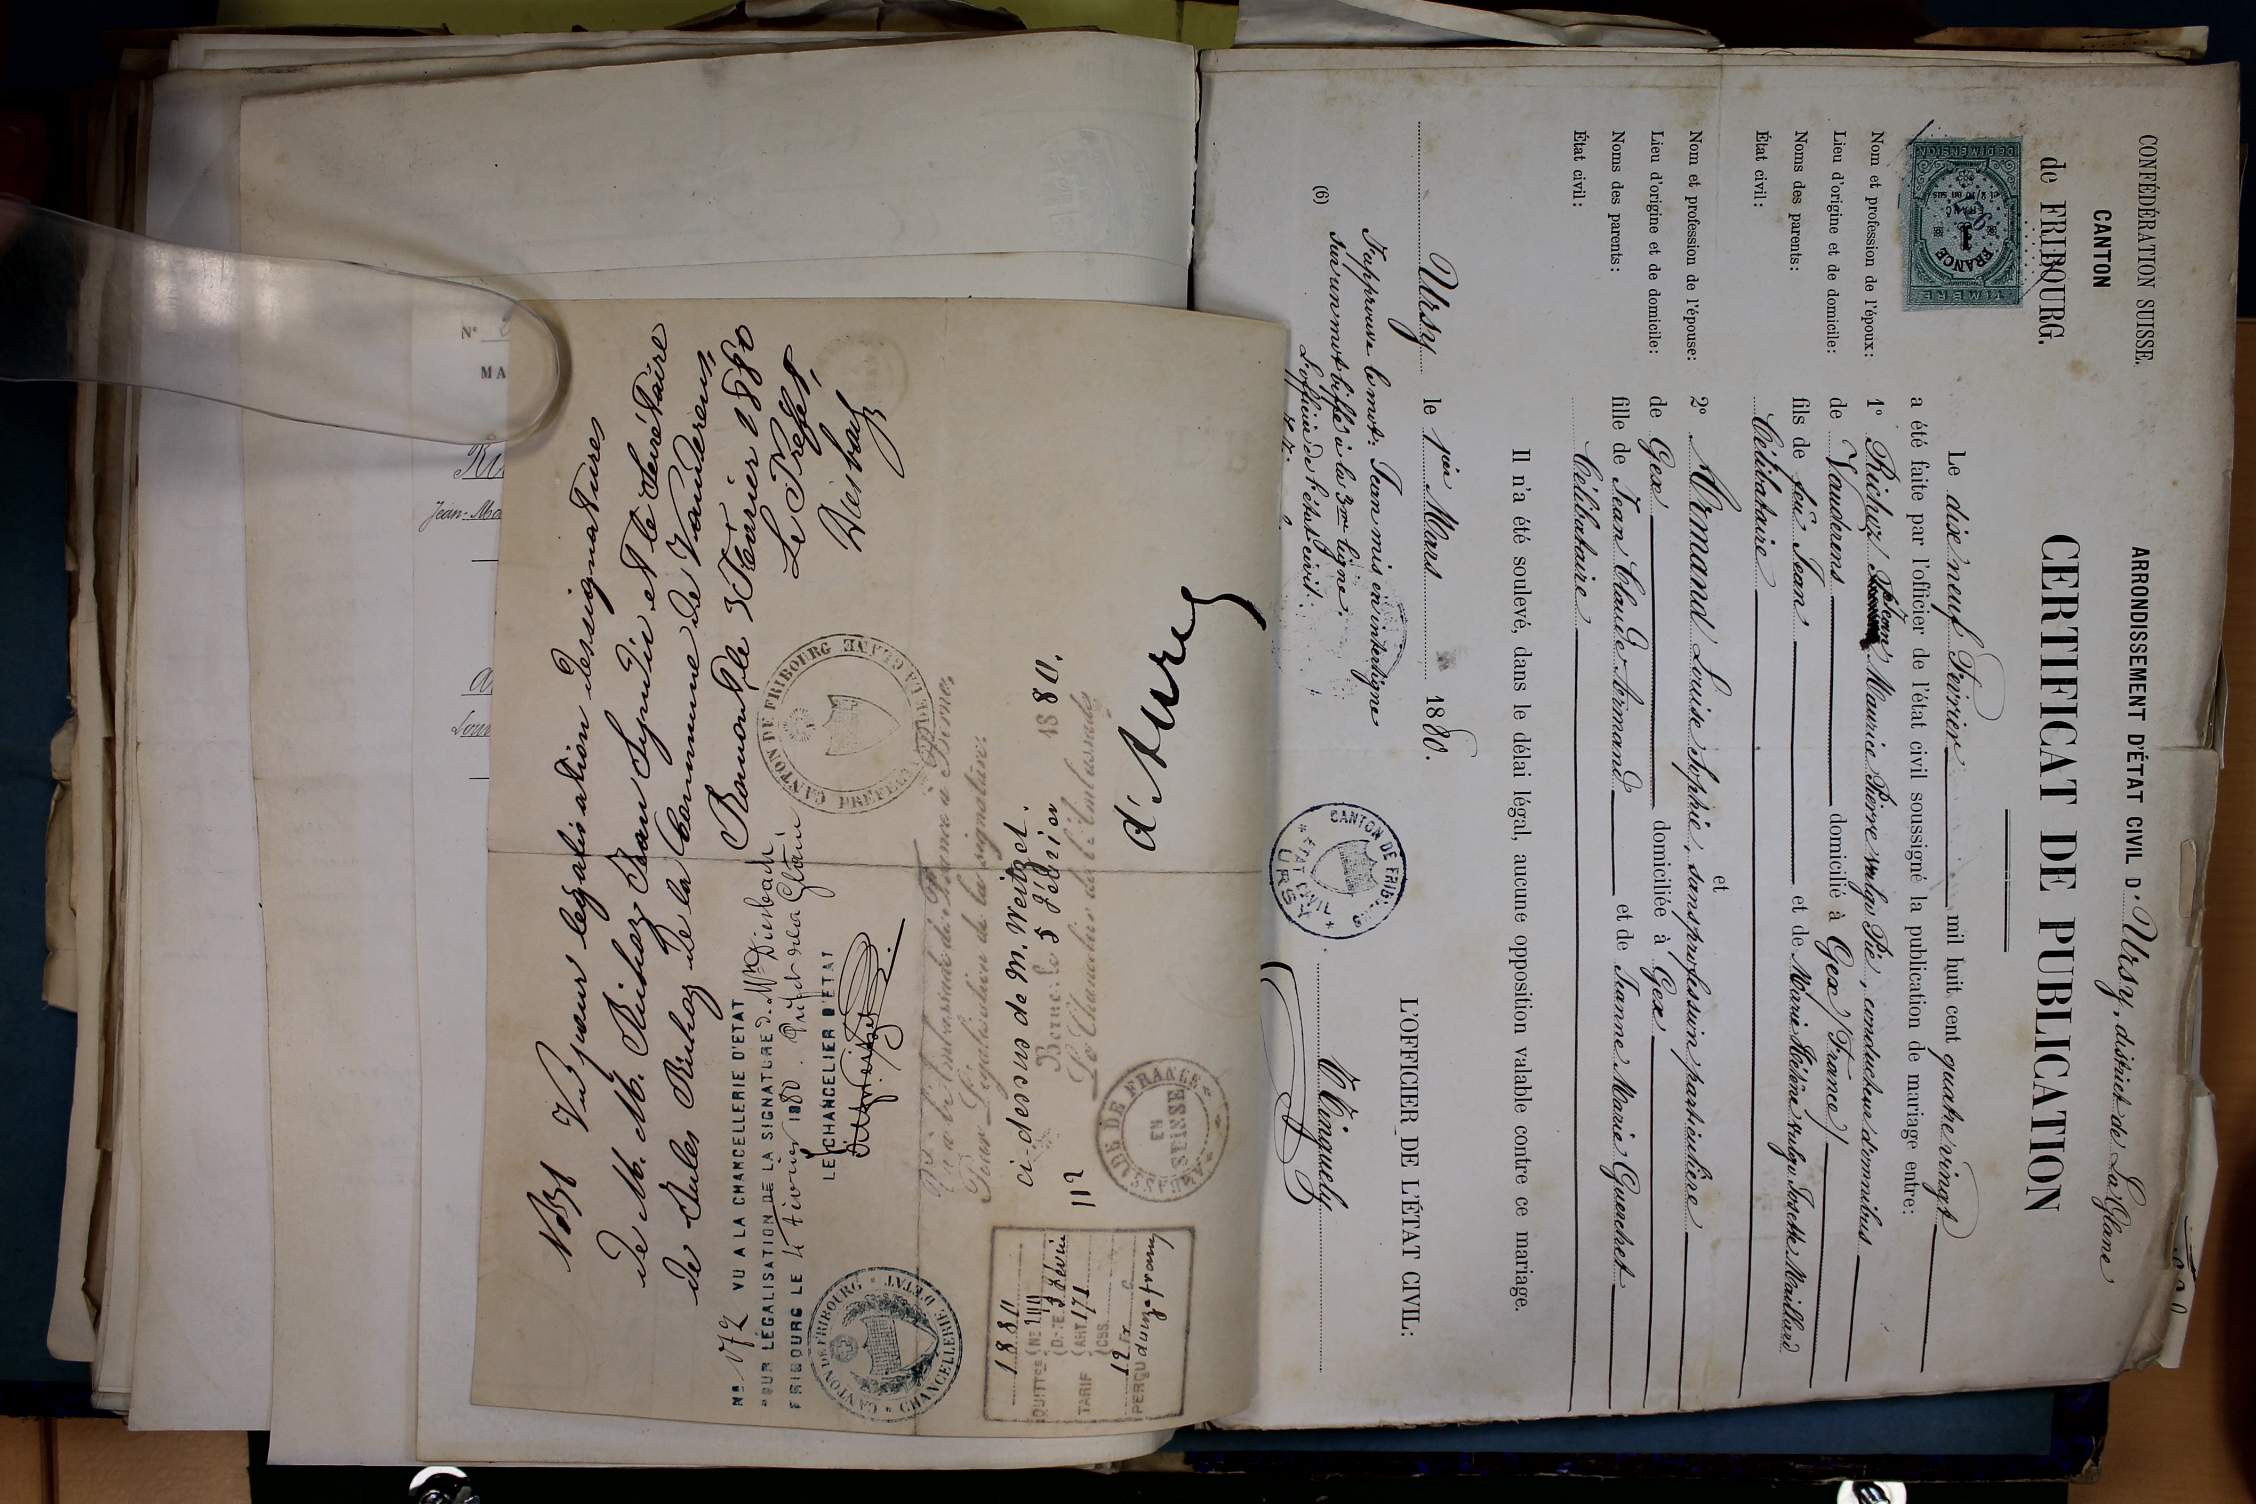 CONFÉDÉRATION SUISSE.
CANTON
de FRIBOURG.
ARRONDISSEMENT D'ÉTAT CIVIL D'Ursy, district de La Glane
CERTIFICAT DE PUBLICATION
TIMBRE
1 FRANC
DE DIMENSION
Le dix neuf Février mil huit cent quatre vingt
a été faite par l'officier de l'état civil soussigné la publication de mariage entre:
Nom et profession de l'époux: 1° Richoz Jean Maurice Pierre vulgo Pié, conducteur d'omnibus
Lieu d'origine et de domicile: de Vauderens domicilié à Gex (France)
Noms des parents: fils de feu Jean et de Marie Hélène vulgo Josette Maillard
État civil: Célibataire
et
Nom et profession de l'épouse: 2° Armand Louise Sophie, sans profession particulière
Lieu d'origine et de domicile: de Gex domiciliée à Gex
Noms des parents: fille de Jean Claude Armand et de Jeanne Marie Guerchet
État civil: Célibataire
Il n'a été soulevé, dans le délai légal, aucune opposition valable contre ce mariage.
Ursy le 1er Mars 1880.
L'OFFICIER DE L'ÉTAT CIVIL:
J'approuve le mot: Jean mis en interligne
sur un mot biffé à la 3me ligne.
L'officier de l'état civil:
(6)
CANTON DE FRIBOURG
ETAT CIVIL
URSY
Minguely
N° 31 Vu pour légalisation des signatures
de M. M. Richoz Jean Syndic et le Secrétaire
de Jules Richoz de la Commune de Vauderens,
Romont, le 3 Février 1880
Le Préfet,
Diesbach
CANTON DE FRIBOURG
PREFECTURE DE LA GLANE
No 172 VU A LA CHANCELLERIE D'ETAT
POUR LÉGALISATION DE LA SIGNATURE de Mr Diesbach
FRIBOURG LE 4 Février 1880. Préfet de la Glâne
LE CHANCELIER D'ETAT
CANTON DE FRIBOURG
CHANCELLERIE D'ETAT
Vu à l'Ambassade de France à Berne,
Pour Légalisation de la signature
ci-dessus de M. Weitzel.
Berne, le 5 Février 1880.
Le Chancelier de l'Ambassade
112
d'Aure
AMBASSADE DE FRANCE
EN
SUISSE
1880
QUITTce
TARIF (ART 171
12 Fr C
PERÇU douze francs
N°
MA
Jean-Ma